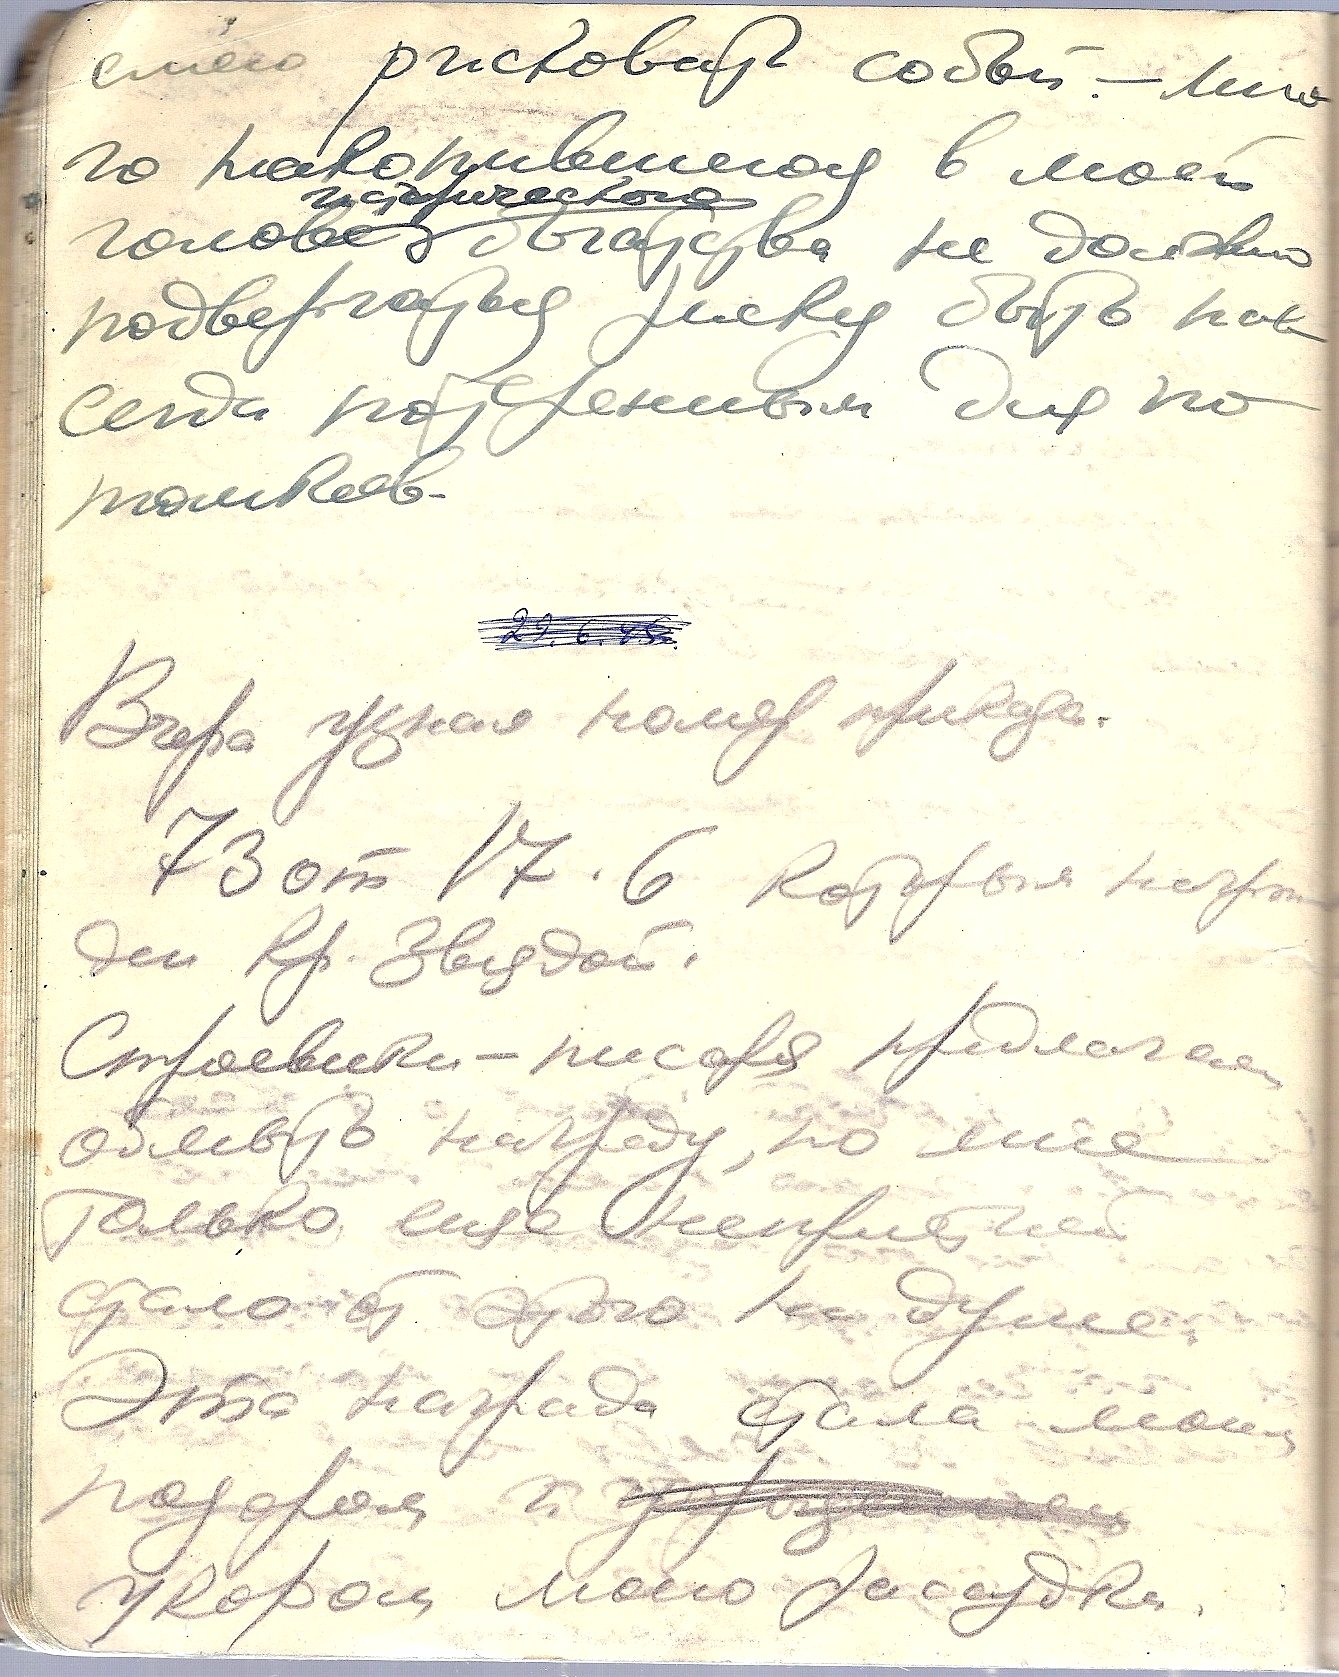 смело рисковать собой. – Мно
го накопившегося в моей
исторического
голове богатства не должно
подвергаться риску быть нав
сегда потерянным для по
томков.
29.6.45г.
Вчера узнал номер приказа.
73 от 17.6 которым награж
ден Кр. Звездой.
Строевики – писаря предлагают
обмыть награду, но мне
только еще неприятней
стало от этого на душе.
Эта награда стала моим
позором и
укором моего рассудка.